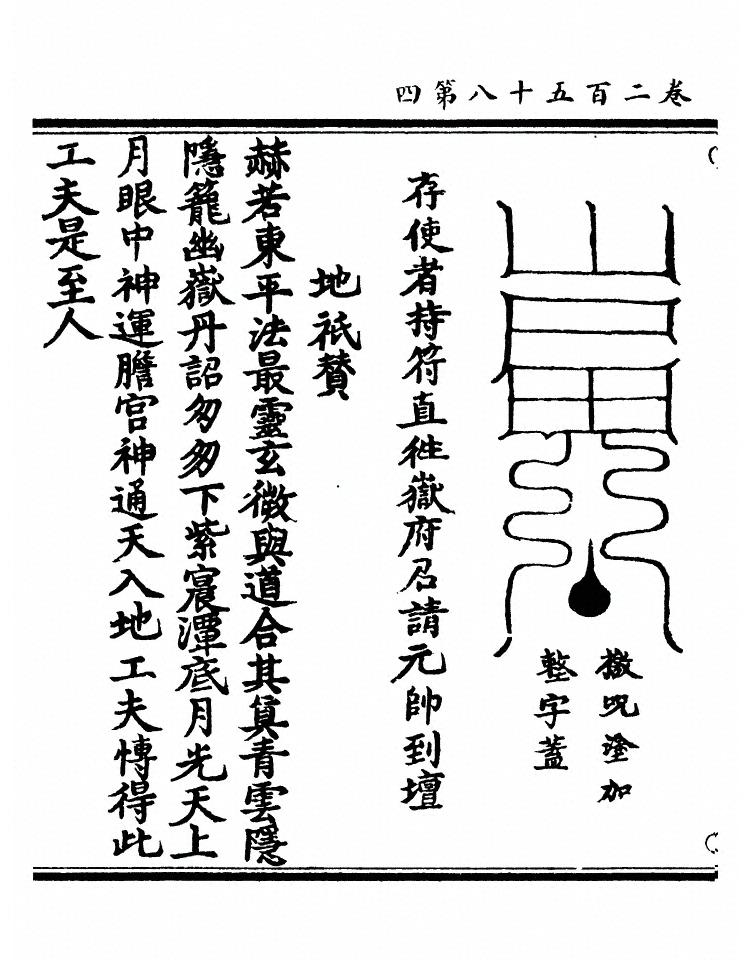 卷二百五十八第四
檄咒塗加
整字蓋
存使者持符直徃嶽府召請元帥到壇
地祇贊
赫若東平法最靈玄徵與道合其真青雲隱
隱籠幽嶽丹詔匆匆下紫宸潭底月光天上
月眼中神運膽宮神通天入地工夫慱得此
工夫是至人